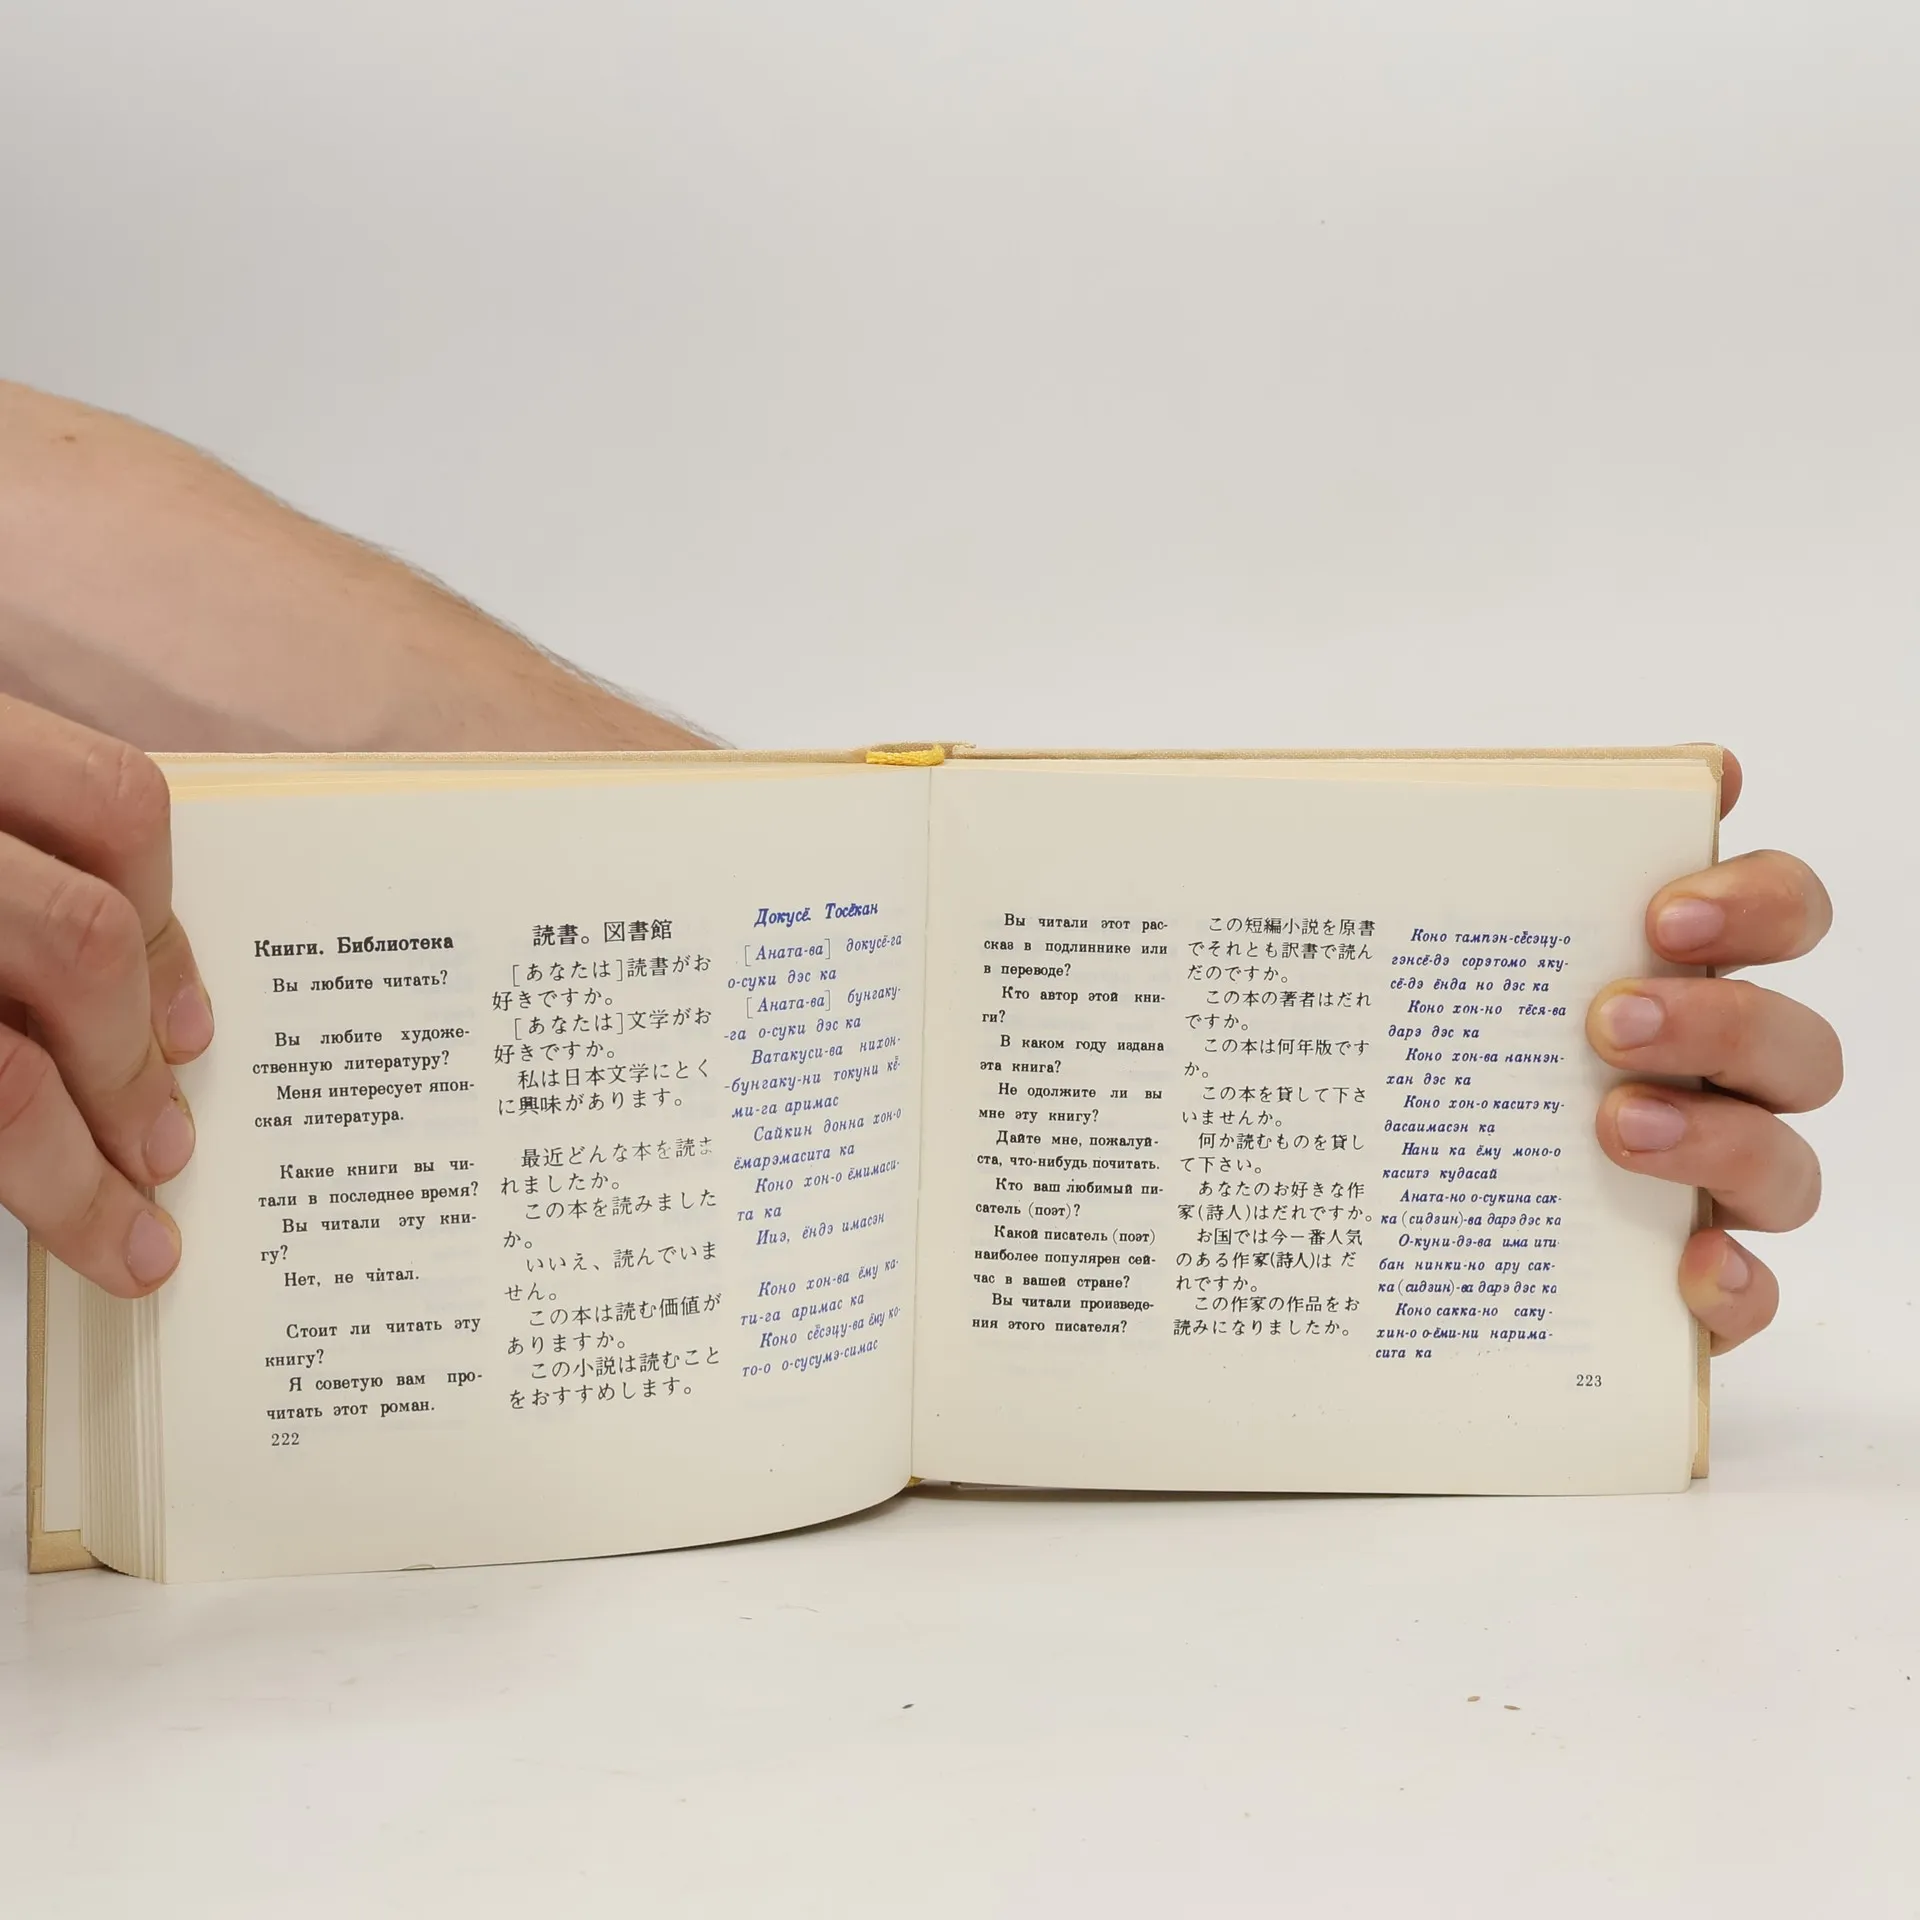 Книги. Библиотека
Вы любите читать?
Вы любите художе-
ственную литературу?
Меня интересует япон-
ская литература.
Какие книги вы чи-
тали в последнее время?
Вы читали эту кни-
гу?
Нет, не читал.
Стоит ли читать эту
книгу?
Я советую вам про-
читать этот роман.
222
読書。図書館
[あなたは]読書がお
好きですか。
[あなたは]文学がお
好きですか。
私は日本文学にとく
に興味があります。
最近どんな本を読ま
れましたか。
この本を読みました
か。
いいえ、読んでいま
せん。
この本は読む価値が
ありますか。
この小説は読むこと
をおすすめします。
Докусё. Тосёкан
[Аната-ва] докусё-га
о-суки дэс ка
[Аната-ва] бунгаку-
-га о-суки дэс ка
Ватакуси-ва нихон-
-бунгаку-ни токуни кё-
ми-га аримас
Сайкин донна хон-о
ёмарэмасита ка
Коно хон-о ёмимаси-
та ка
Ииэ, ёндэ имасэн
Коно хон-ва ёму ка-
ти-га аримас ка
Коно сёсэцу-ва ёму ко-
то-о о-сусумэ-симас
Вы читали этот рас-
сказ в подлиннике или
в переводе?
Кто автор этой кни-
ги?
В каком году издана
эта книга?
Не одолжите ли вы
мне эту книгу?
Дайте мне, пожалуй-
ста, что-нибудь почитать.
Кто ваш любимый пи-
сатель (поэт)?
Какой писатель (поэт)
наиболее популярен сей-
час в вашей стране?
Вы читали произведе-
ния этого писателя?
この短編小説を原書
でそれとも訳書で読ん
だのですか。
この本の著者はだれ
ですか。
この本は何年版です
か。
この本を貸して下さ
いませんか。
何か読むものを貸し
て下さい。
あなたのお好きな作
家(詩人)はだれですか。
お国では今一番人気
のある作家(詩人)は だ
れですか。
この作家の作品をお
読みになりましたか。
Коно тампэн-сёсэцу-о
гэнсё-дэ сорэтомо яку-
сё-дэ ёнда но дэс ка
Коно хон-но тёся-ва
дарэ дэс ка
Коно хон-ва наннэн-
хан дэс ка
Коно хон-о каситэ ку-
дасаимасэн ка
Нани ка ёму моно-о
каситэ кудасай
Аната-но о-сукина сак-
ка (сидзин)-ва дарэ дэс ка
О-куни-дэ-ва има ити-
бан нинки-но ару сак-
ка (сидзин)-ва дарэ дэс ка
Коно сакка-но саку-
хин-о о-ёми-ни нарима-
сита ка
223